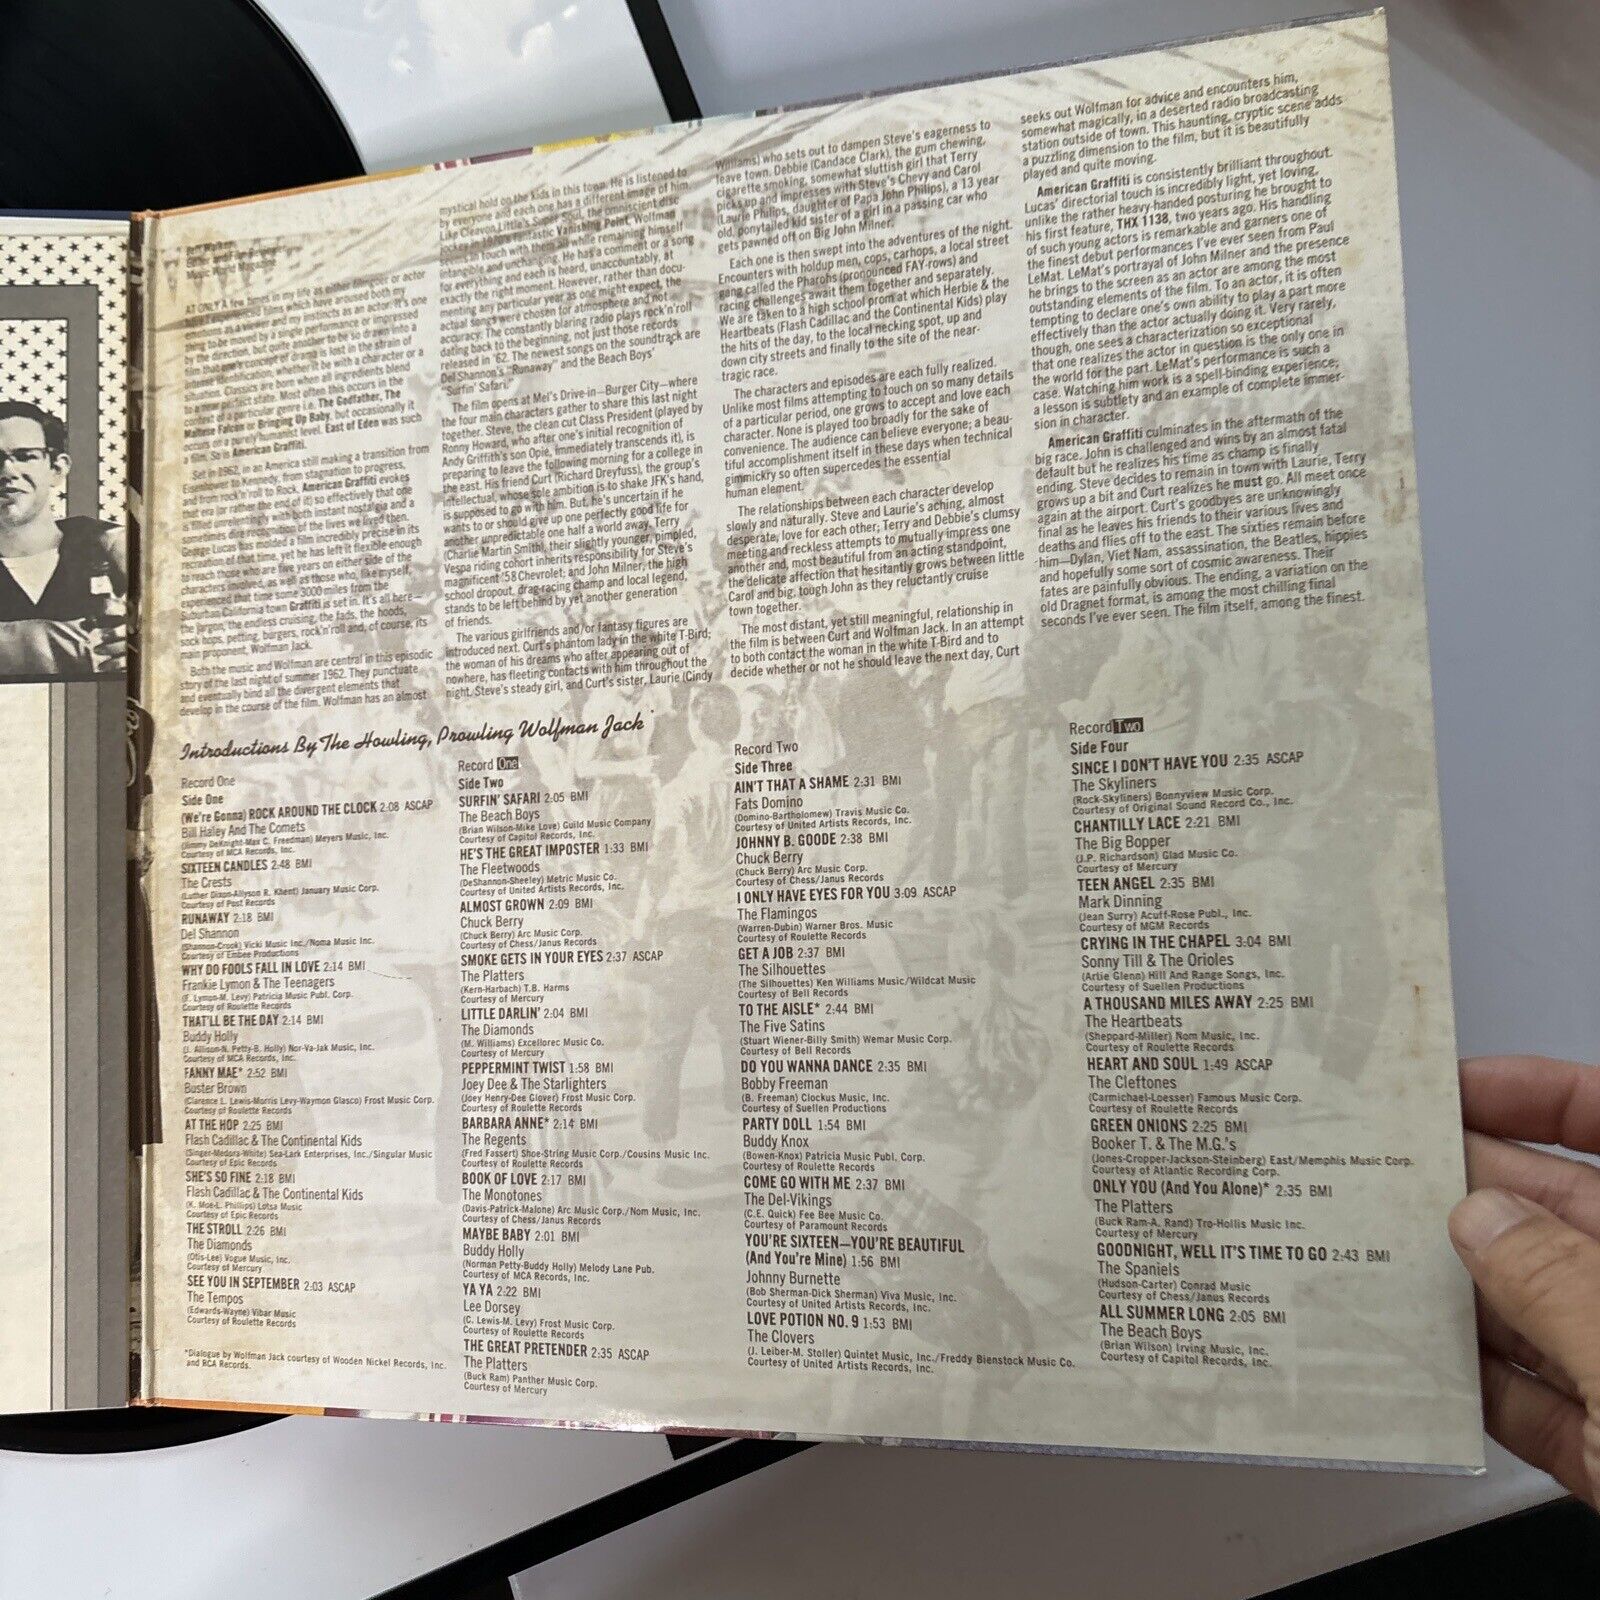 Jeff Walker
Music World Magazine
AT ONLY A few times in my life as either filmgoer or actor
have I experienced films which have aroused both my
emotions as a viewer and my instincts as an actor. It's one
thing to be moved by a single performance or impressed
by the direction, but quite another to be so drawn into a
film that one's concept of drama is lost in the strain of
intense identification, whether it be with a character or a
situation. Classics are born when all ingredients blend
to a near perfect state. Most often this occurs in the
context of a particular genre i.e. The Godfather, The
Maltese Falcon or Bringing Up Baby, but occasionally it
occurs on a purely humanist level. East of Eden was such
a film. So is American Graffiti.
Set in 1962, in an America still making a transition from
Eisenhower to Kennedy, from stagnation to progress,
and from rock'n'roll to Rock, American Graffiti evokes
that era (or rather the end of it) so effectively that one
is filled unrelentingly with both instant nostalgia and a
sometimes dire recognition of the lives we lived then.
George Lucas has molded a film incredibly precise in its
recreation of that time, yet he has left it flexible enough
to reach those who are five years on either side of the
characters involved, as well as those who, like myself,
experienced that time some 3000 miles from the
Suburban California town Graffiti is set in. It's all here—
the jargon, the endless cruising, the fads, the hoods,
sock hops, petting, burgers, rock'n'roll and, of course, its
main proponent, Wolfman Jack.
Both the music and Wolfman are central in this episodic
story of the last night of summer 1962. They punctuate
and eventually bind all the divergent elements that
develop in the course of the film. Wolfman has an almost
mystical hold on the kids in this town. He is listened to
by everyone and each one has a different image of him.
Like Cleavon Little's Super Soul, the omniscient disc
jockey in 1970's fantastic Vanishing Point, Wolfman
seems in touch with them all while remaining himself
intangible and unchanging. He has a comment or a song
for everything and each is heard, unaccountably, at
exactly the right moment. However, rather than docu-
menting any particular year as one might expect, the
actual songs were chosen for atmosphere and not
accuracy. The constantly blaring radio plays rock'n'roll
dating back to the beginning, not just those records
released in '62. The newest songs on the soundtrack are
Del Shannon's "Runaway" and the Beach Boys'
"Surfin' Safari."
The film opens at Mel's Drive-in—Burger City—where
the four main characters gather to share this last night
together. Steve, the clean cut Class President (played by
Ronny Howard, who after one's initial recognition of
Andy Griffith's son Opie, immediately transcends it), is
preparing to leave the following morning for a college in
the east. His friend Curt (Richard Dreyfuss), the group's
intellectual, whose sole ambition is to shake JFK's hand,
is supposed to go with him. But, he's uncertain if he
wants to or should give up one perfectly good life for
another unpredictable one half a world away. Terry
(Charlie Martin Smith), their slightly younger, pimpled,
Vespa riding cohort inherits responsibility for Steve's
magnificent '58 Chevrolet; and John Milner, the high
school dropout, drag-racing champ and local legend,
stands to be left behind by yet another generation
of friends.
The various girlfriends and/or fantasy figures are
introduced next. Curt's phantom lady in the white T-Bird;
the woman of his dreams who after appearing out of
nowhere, has fleeting contacts with him throughout the
night. Steve's steady girl, and Curt's sister, Laurie (Cindy
Williams) who sets out to dampen Steve's eagerness to
leave town. Debbie (Candace Clark), the gum chewing,
cigarette smoking, somewhat sluttish girl that Terry
picks up and impresses with Steve's Chevy and Carol
(Laurie Philips, daughter of Papa John Philips), a 13 year
old, ponytailed kid sister of a girl in a passing car who
gets pawned off on Big John Milner.
Each one is then swept into the adventures of the night.
Encounters with holdup men, cops, carhops, a local street
gang called the Pharohs (pronounced FAY-rows) and
racing challenges await them together and separately.
We are taken to a high school prom at which Herbie & the
Heartbeats (Flash Cadillac and the Continental Kids) play
the hits of the day, to the local necking spot, up and
down city streets and finally to the site of the near-
tragic race.
The characters and episodes are each fully realized.
Unlike most films attempting to touch on so many details
of a particular period, one grows to accept and love each
character. None is played too broadly for the sake of
convenience. The audience can believe everyone; a beau-
tiful accomplishment itself in these days when technical
gimmickly so often supercedes the essential
human element.
The relationships between each character develop
slowly and naturally. Steve and Laurie's aching, almost
desperate, love for each other; Terry and Debbie's clumsy
meeting and reckless attempts to mutually impress one
another and, most beautiful from an acting standpoint,
the delicate affection that hesitantly grows between little
Carol and big, tough John as they reluctantly cruise
town together.
The most distant, yet still meaningful, relationship in
the film is between Curt and Wolfman Jack. In an attempt
to both contact the woman in the white T-Bird and to
decide whether or not he should leave the next day, Curt
seeks out Wolfman for advice and encounters him,
somewhat magically, in a deserted radio broadcasting
station outside of town. This haunting, cryptic scene adds
a puzzling dimension to the film, but it is beautifully
played and quite moving.
American Graffiti is consistently brilliant throughout.
Lucas' directorial touch is incredibly light, yet loving,
unlike the rather heavy-handed posturing he brought to
his first feature, THX 1138, two years ago. His handling
of such young actors is remarkable and garners one of
the finest debut performances I've ever seen from Paul
LeMat. LeMat's portrayal of John Milner and the presence
he brings to the screen as an actor are among the most
outstanding elements of the film. To an actor, it is often
tempting to declare one's own ability to play a part more
effectively than the actor actually doing it. Very rarely,
though, one sees a characterization so exceptional
that one realizes the actor in question is the only one in
the world for the part. LeMat's performance is such a
case. Watching him work is a spell-binding experience;
a lesson is subtlety and an example of complete immer-
sion in character.
American Graffiti culminates in the aftermath of the
big race. John is challenged and wins by an almost fatal
default but he realizes his time as champ is finally
ending. Steve decides to remain in town with Laurie, Terry
grows up a bit and Curt realizes he must go. All meet once
again at the airport. Curt's goodbyes are unknowingly
final as he leaves his friends to their various lives and
deaths and flies off to the east. The sixties remain before
him—Dylan, Viet Nam, assassination, the Beatles, hippies
and hopefully some sort of cosmic awareness. Their
fates are painfully obvious. The ending, a variation on the
old Dragnet format, is among the most chilling final
seconds I've ever seen. The film itself, among the finest.
Introductions By The Howling, Prowling Wolfman Jack*
Record One
Side One
(We're Gonna) ROCK AROUND THE CLOCK 2:08 ASCAP
Bill Haley And The Comets
(Jimmy DeKnight-Max C. Freedman) Meyers Music, Inc.
Courtesy of MCA Records, Inc.
SIXTEEN CANDLES 2:48 BMI
The Crests
(Luther Dixon-Allyson R. Khent) January Music Corp.
Courtesy of Post Records
RUNAWAY 2:18 BMI
Del Shannon
(Shannon-Crook) Vicki Music Inc./Noma Music Inc.
Courtesy of Embee Productions
WHY DO FOOLS FALL IN LOVE 2:14 BMI
Frankie Lymon & The Teenagers
(F. Lymon-M. Levy) Patricia Music Publ. Corp.
Courtesy of Roulette Records
THAT'LL BE THE DAY 2:14 BMI
Buddy Holly
(J. Allison-N. Petty-B. Holly) Nor-Va-Jak Music, Inc.
Courtesy of MCA Records, Inc.
FANNY MAE* 2:52 BMI
Buster Brown
(Clarence L. Lewis-Morris Levy-Waymon Glasco) Frost Music Corp.
Courtesy of Roulette Records
AT THE HOP 2:25 BMI
Flash Cadillac & The Continental Kids
(Singer-Medora-White) Sea-Lark Enterprises, Inc./Singular Music
Courtesy of Epic Records
SHE'S SO FINE 2:18 BMI
Flash Cadillac & The Continental Kids
(K. Moe-L. Phillips) Lotsa Music
Courtesy of Epic Records
THE STROLL 2:26 BMI
The Diamonds
(Otis-Lee) Vogue Music, Inc.
Courtesy of Mercury
SEE YOU IN SEPTEMBER 2:03 ASCAP
The Tempos
(Edwards-Wayne) Vibar Music
Courtesy of Roulette Records
*Dialogue by Wolfman Jack courtesy of Wooden Nickel Records, Inc.
and RCA Records.
Record One
Side Two
SURFIN' SAFARI 2:05 BMI
The Beach Boys
(Brian Wilson-Mike Love) Guild Music Company
Courtesy of Capitol Records, Inc.
HE'S THE GREAT IMPOSTER 1:33 BMI
The Fleetwoods
(DeShannon-Sheeley) Metric Music Co.
Courtesy of United Artists Records, Inc.
ALMOST GROWN 2:09 BMI
Chuck Berry
(Chuck Berry) Arc Music Corp.
Courtesy of Chess/Janus Records
SMOKE GETS IN YOUR EYES 2:37 ASCAP
The Platters
(Kern-Harbach) T.B. Harms
Courtesy of Mercury
LITTLE DARLIN' 2:04 BMI
The Diamonds
(M. Williams) Excellorec Music Co.
Courtesy of Mercury
PEPPERMINT TWIST 1:58 BMI
Joey Dee & The Starlighters
(Joey Henry-Dee Glover) Frost Music Corp.
Courtesy of Roulette Records
BARBARA ANNE* 2:14 BMI
The Regents
(Fred Fassert) Shoe-String Music Corp./Cousins Music Inc.
Courtesy of Roulette Records
BOOK OF LOVE 2:17 BMI
The Monotones
(Davis-Patrick-Malone) Arc Music Corp./Nom Music, Inc.
Courtesy of Chess/Janus Records
MAYBE BABY 2:01 BMI
Buddy Holly
(Norman Petty-Buddy Holly) Melody Lane Pub.
Courtesy of MCA Records, Inc.
YA YA 2:22 BMI
Lee Dorsey
(C. Lewis-M. Levy) Frost Music Corp.
Courtesy of Roulette Records
THE GREAT PRETENDER 2:35 ASCAP
The Platters
(Buck Ram) Panther Music Corp.
Courtesy of Mercury
Record Two
Side Three
AIN'T THAT A SHAME 2:31 BMI
Fats Domino
(Domino-Bartholomew) Travis Music Co.
Courtesy of United Artists Records, Inc.
JOHNNY B. GOODE 2:38 BMI
Chuck Berry
(Chuck Berry) Arc Music Corp.
Courtesy of Chess/Janus Records
I ONLY HAVE EYES FOR YOU 3:09 ASCAP
The Flamingos
(Warren-Dubin) Warner Bros. Music
Courtesy of Roulette Records
GET A JOB 2:37 BMI
The Silhouettes
(The Silhouettes) Ken Williams Music/Wildcat Music
Courtesy of Bell Records
TO THE AISLE* 2:44 BMI
The Five Satins
(Stuart Wiener-Billy Smith) Wemar Music Corp.
Courtesy of Bell Records
DO YOU WANNA DANCE 2:35 BMI
Bobby Freeman
(B. Freeman) Clockus Music, Inc.
Courtesy of Suellen Productions
PARTY DOLL 1:54 BMI
Buddy Knox
(Bowen-Knox) Patricia Music Publ. Corp.
Courtesy of Roulette Records
COME GO WITH ME 2:37 BMI
The Del-Vikings
(C.E. Quick) Fee Bee Music Co.
Courtesy of Paramount Records
YOU'RE SIXTEEN—YOU'RE BEAUTIFUL
(And You're Mine) 1:56 BMI
Johnny Burnette
(Bob Sherman-Dick Sherman) Viva Music, Inc.
Courtesy of United Artists Records, Inc.
LOVE POTION NO. 9 1:53 BMI
The Clovers
(J. Leiber-M. Stoller) Quintet Music, Inc./Freddy Bienstock Music Co.
Courtesy of United Artists Records, Inc.
Record Two
Side Four
SINCE I DON'T HAVE YOU 2:35 ASCAP
The Skyliners
(Rock-Skyliners) Bonnyview Music Corp.
Courtesy of Original Sound Record Co., Inc.
CHANTILLY LACE 2:21 BMI
The Big Bopper
(J.P. Richardson) Glad Music Co.
Courtesy of Mercury
TEEN ANGEL 2:35 BMI
Mark Dinning
(Jean Surry) Acuff-Rose Publ., Inc.
Courtesy of MGM Records
CRYING IN THE CHAPEL 3:04 BMI
Sonny Till & The Orioles
(Artie Glenn) Hill And Range Songs, Inc.
Courtesy of Suellen Productions
A THOUSAND MILES AWAY 2:25 BMI
The Heartbeats
(Sheppard-Miller) Nom Music, Inc.
Courtesy of Roulette Records
HEART AND SOUL 1:49 ASCAP
The Cleftones
(Carmichael-Loesser) Famous Music Corp.
Courtesy of Roulette Records
GREEN ONIONS 2:25 BMI
Booker T. & The M.G.'s
(Jones-Cropper-Jackson-Steinberg) East/Memphis Music Corp.
Courtesy of Atlantic Recording Corp.
ONLY YOU (And You Alone)* 2:35 BMI
The Platters
(Buck Ram-A. Rand) Tro-Hollis Music Inc.
Courtesy of Mercury
GOODNIGHT, WELL IT'S TIME TO GO 2:43 BMI
The Spaniels
(Hudson-Carter) Conrad Music
Courtesy of Chess/Janus Records
ALL SUMMER LONG 2:05 BMI
The Beach Boys
(Brian Wilson) Irving Music, Inc.
Courtesy of Capitol Records, Inc.